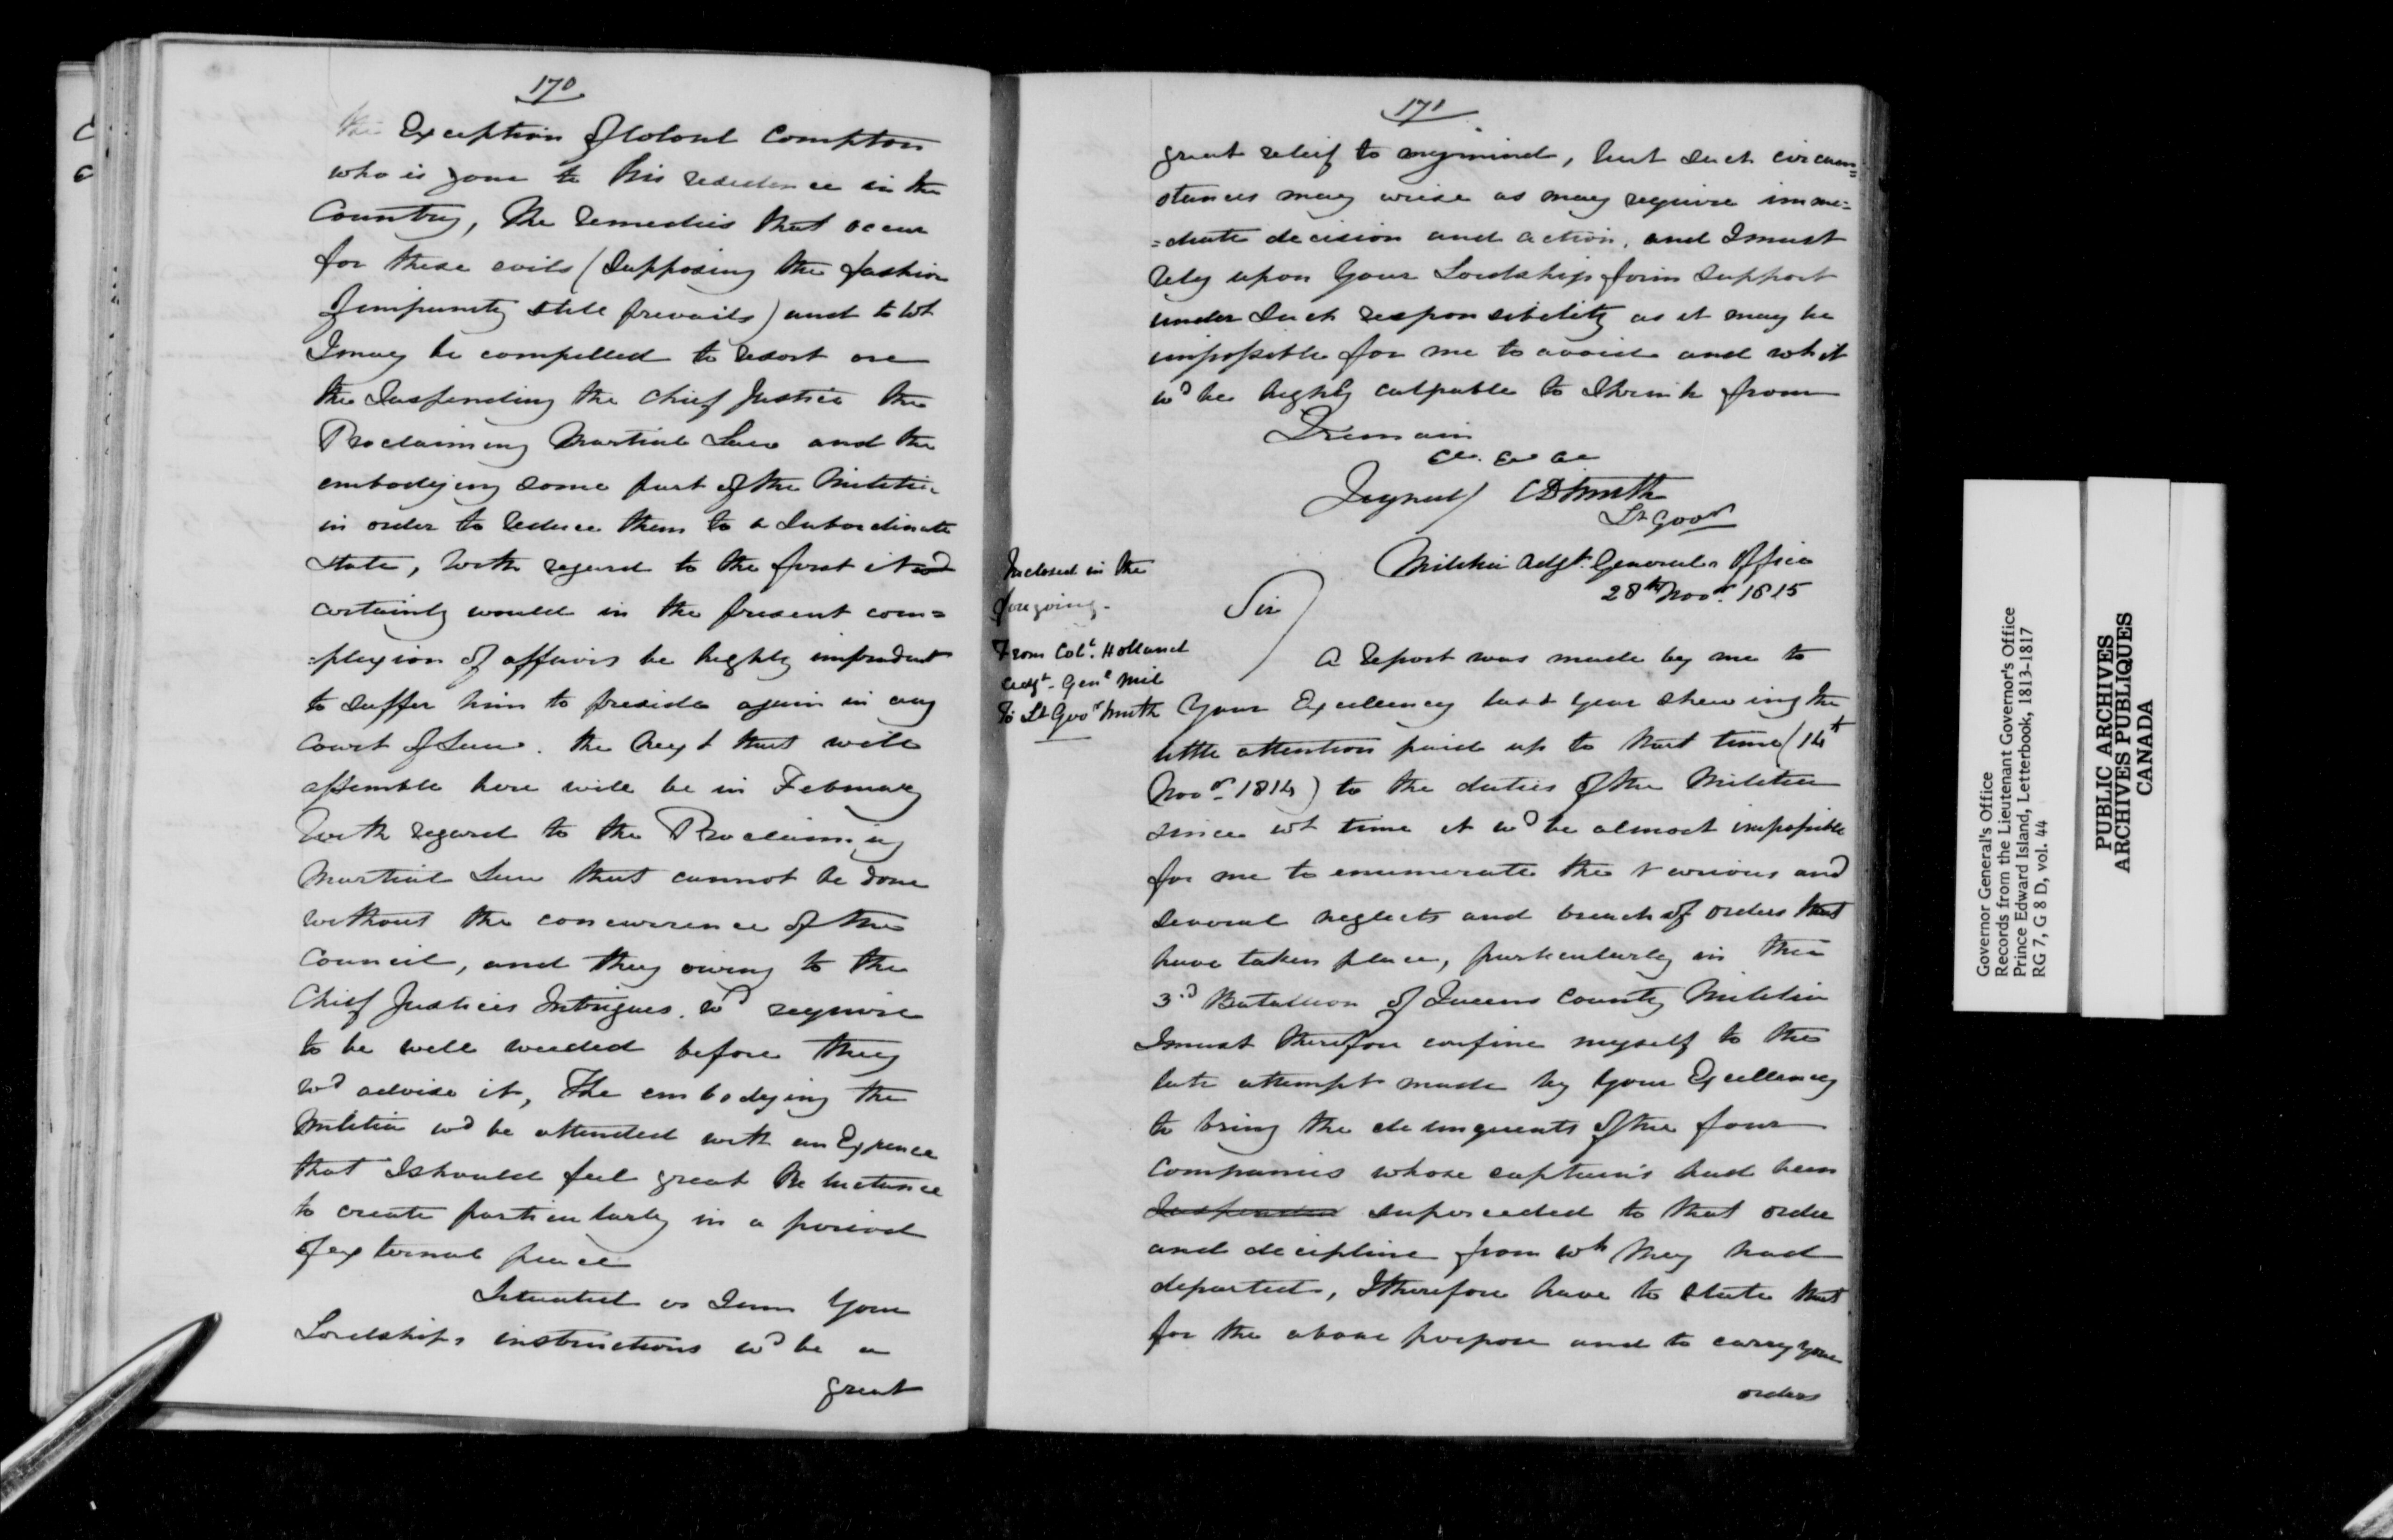 170
the Exception of Colonel Compton
who is gone to his residence in the
Country, The remedies that occur
for these evils (supposing the fashion
of impunity still prevails) and to wh
I may be compelled to resort are
the suspending the Chief Justice the
Proclaiming Martial Law and the
embodying some part of the Militia
in order to reduce them to a subordinate
state, With regard to the first it wd
certainly would in the present com=
=plexion of affairs be highly imprudent
to suffer him to preside again in any
Court of Law. the next that will
assemble here will be in February
With regard to the Proclaiming
Martial Law that cannot be done
without the concurrence of the
Council, and they owing to the
Chief Justices Intrigues. wd require
to be well weeded before they
wd advise it, The embodying the
Militia wd be attended with an Expence
that I should feel great Reluctance
to create particularly in a period
of external peace
Situated as I am Your
Lordships instructions wd be a
great
171
great relief to my mind, but such circum=
stances may arise as may require imme=
=diate decision and action, and I must
rely upon Your Lordships firm support
under such responsibility as it may be
impossible for me to avoid and wh it
wd be highly culpable to shrink from
I remain
&c. &c &c
Signed/ CDSmith
Lt Govr
Inclosed in the
foregoing-
From Colo. Holland
Adjt. Genl Mil
To Lt Govr Smith
Militia Adjt. Generals Office
28th Novr. 1815
Sir
A Report was made by me to
Your Excellency last year shewing the
little attention paid up to that time (14th
Novr. 1814) to the duties of the Militia
since wh time it wd be almost impossible
for me to enumerate the various and
several neglects and breach of orders that
have taken place, particularly in the
3rd Batallion of Queens County Militia
I must therefore confine myself to the
late attempt made by Your Excellency
to bring the delinquents of the four
Companies whose captains had been
Suspended superceded to that order
and decipline from wh they had
departed, I therefore have to state that
for the above purpose and to carry your
orders
Governor General's Office
Records from the Lieutenant Governor's Office
Prince Edward Island, Letterbook, 1813-1817
RG 7, G 8 D, vol. 44
PUBLIC ARCHIVES
ARCHIVES PUBLIQUES
CANADA